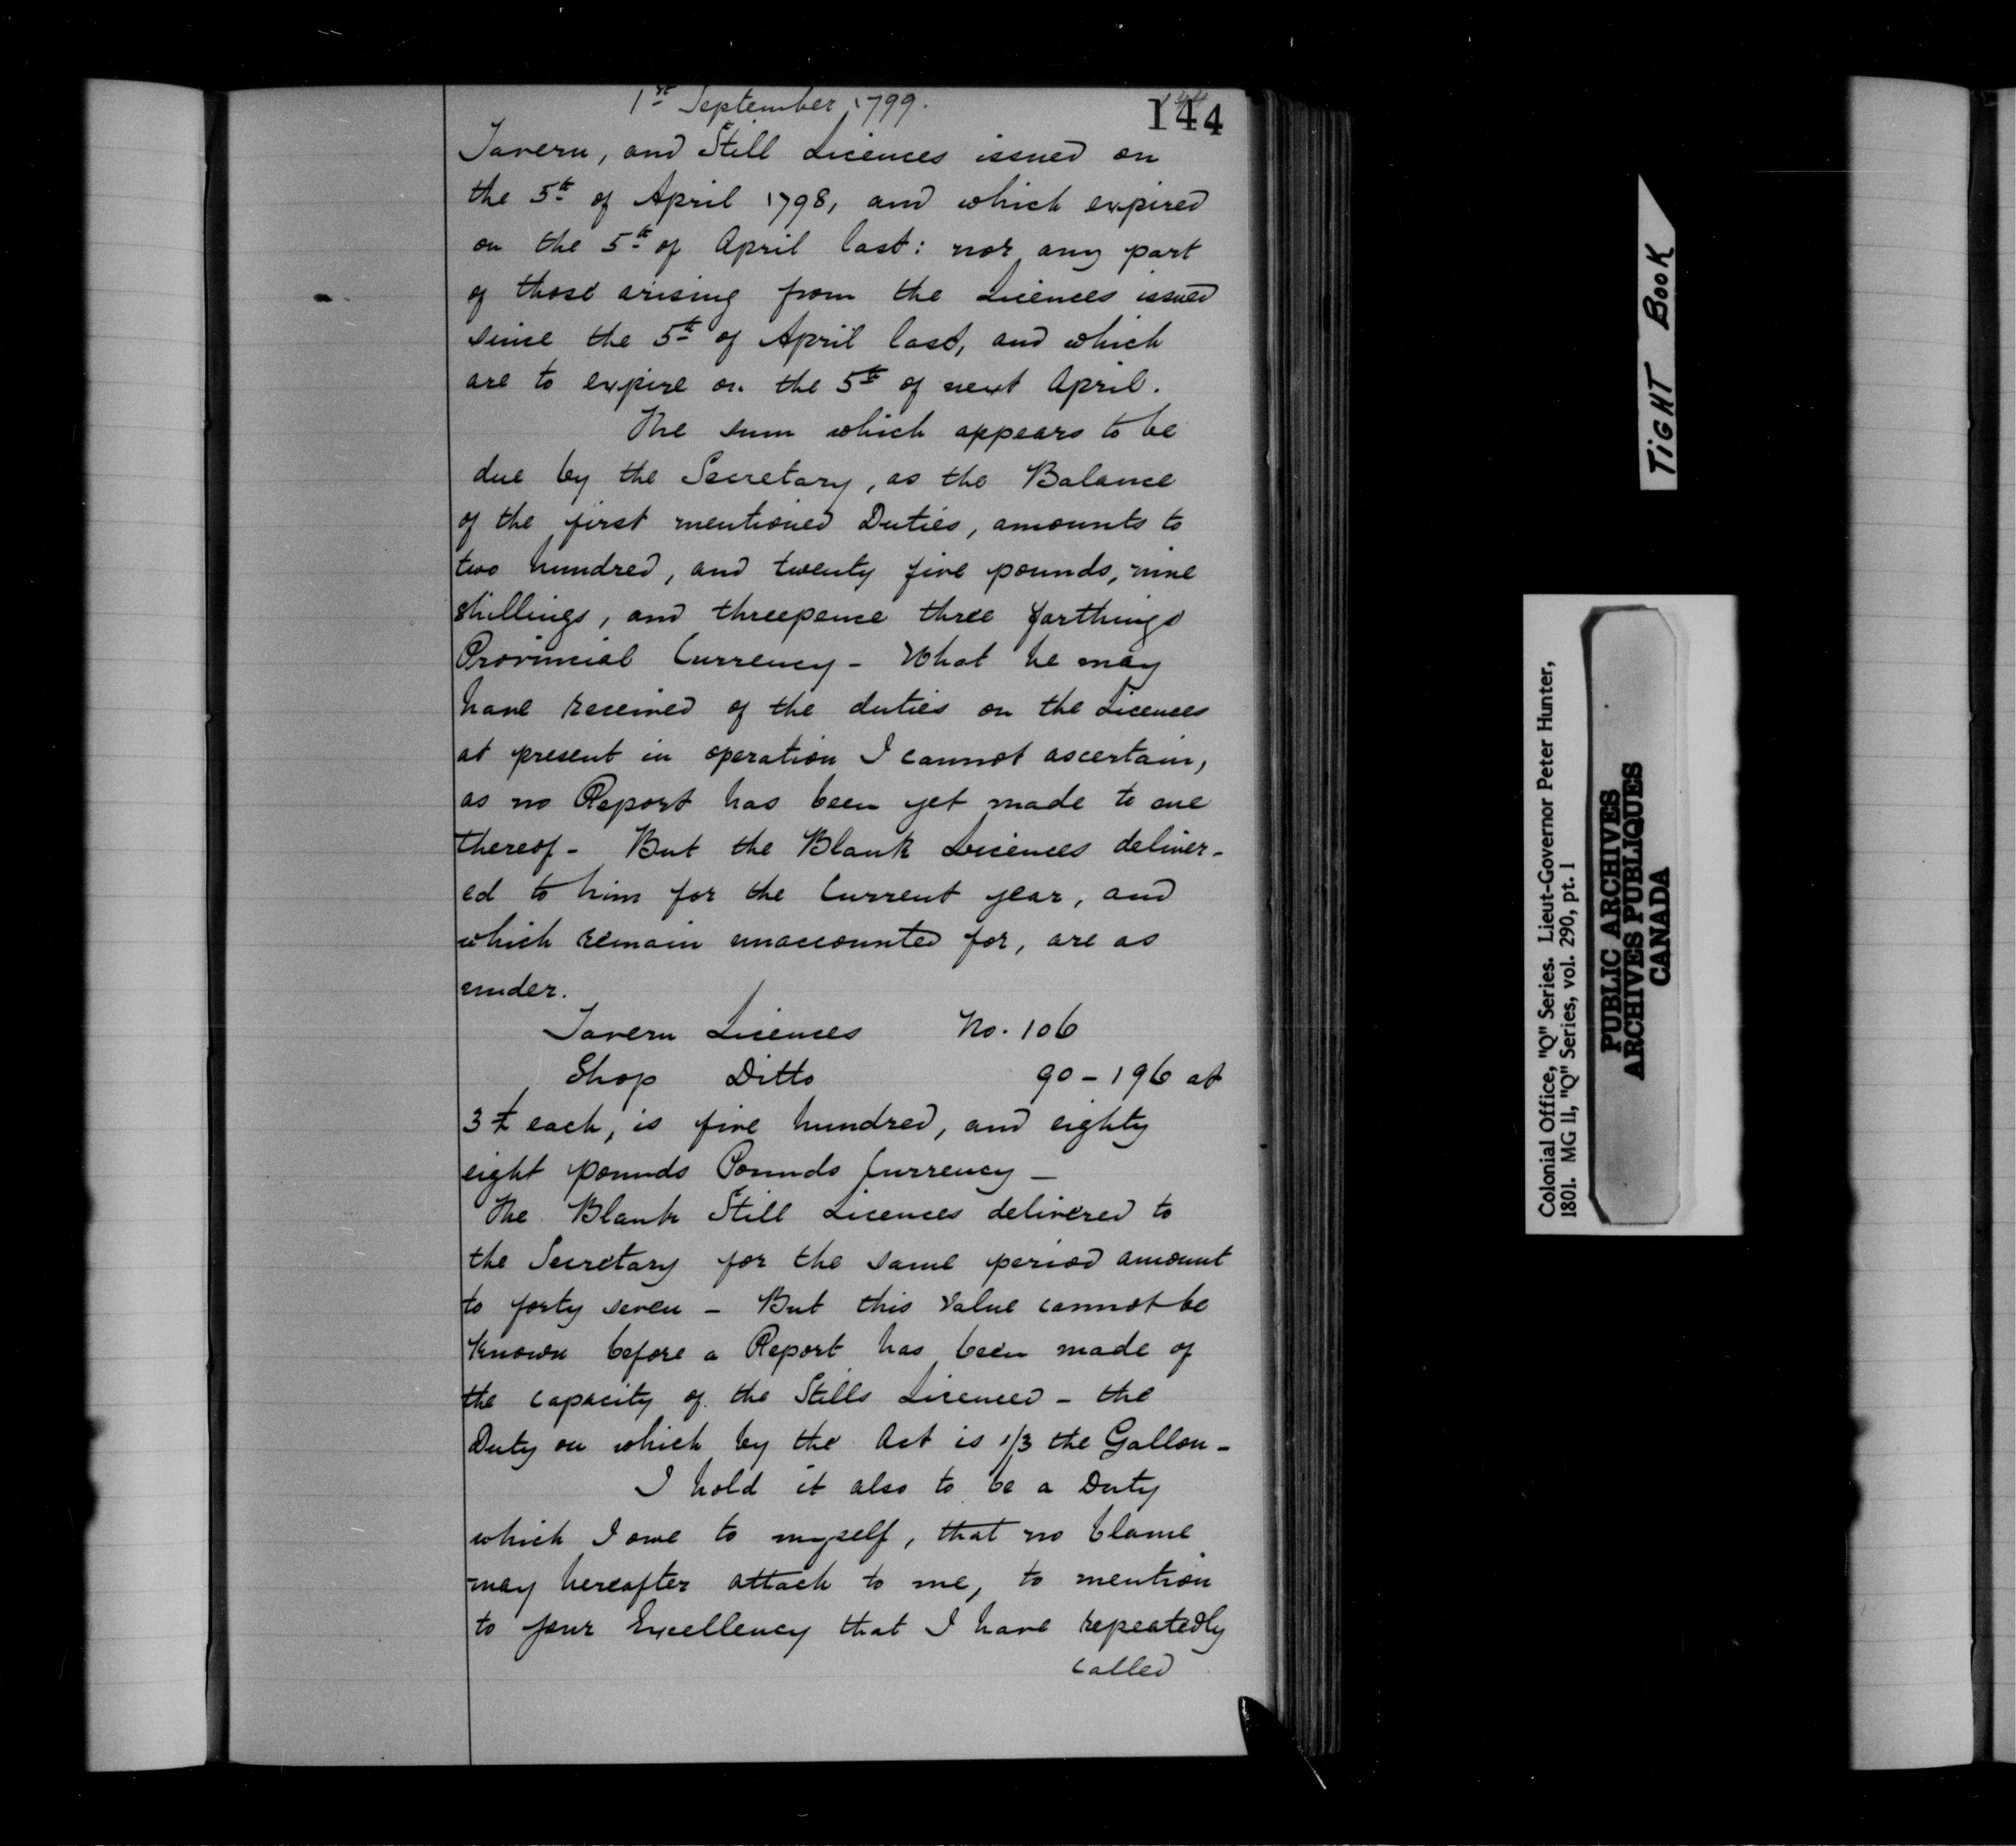 1st September 1799.
144
Tavern, and Still Licences issued on
the 5th of April 1798, and which expired
on the 5th of April last: nor any part
of those arising from the Licences issued
since the 5th of April last, and which
are to expire on the 5th of next April.
The sum which appears to be
due by the Secretary, as the Balance
of the first mentioned Duties, amounts to
two hundred, and twenty five pounds, nine
shillings, and threepence three farthings
Provincial Currency - What he may
have received of the duties on the Licences
at present in operation I cannot ascertain,
as no Report has been yet made to me
thereof - But the Blank Licences deliver-
ed to him for the Current year, and
which remain unaccounted for, are as
under.
Tavern Licences No. 106
Shop Ditto 90 - 196 at
3 £ each, is five hundred, and eighty
eight pounds Pounds Currency -
The Blank Still Licences delivered to
the Secretary for the same period amount
to forty seven - But this value cannot be
Known before a Report has been made of
the capacity of the Stills Licenced - the
Duty on which by the Act is 1/3 the Gallon -
I hold it also to be a Duty
which I owe to myself, that no blame
may hereafter attach to me, to mention
to your Excellency that I have repeatedly
called
TIGHT BOOK
Colonial Office, "Q" Series. Lieut-Governor Peter Hunter,
1801. MG 11, "Q" Series, vol. 290, pt. 1
PUBLIC ARCHIVES
ARCHIVES PUBLIQUES
CANADA